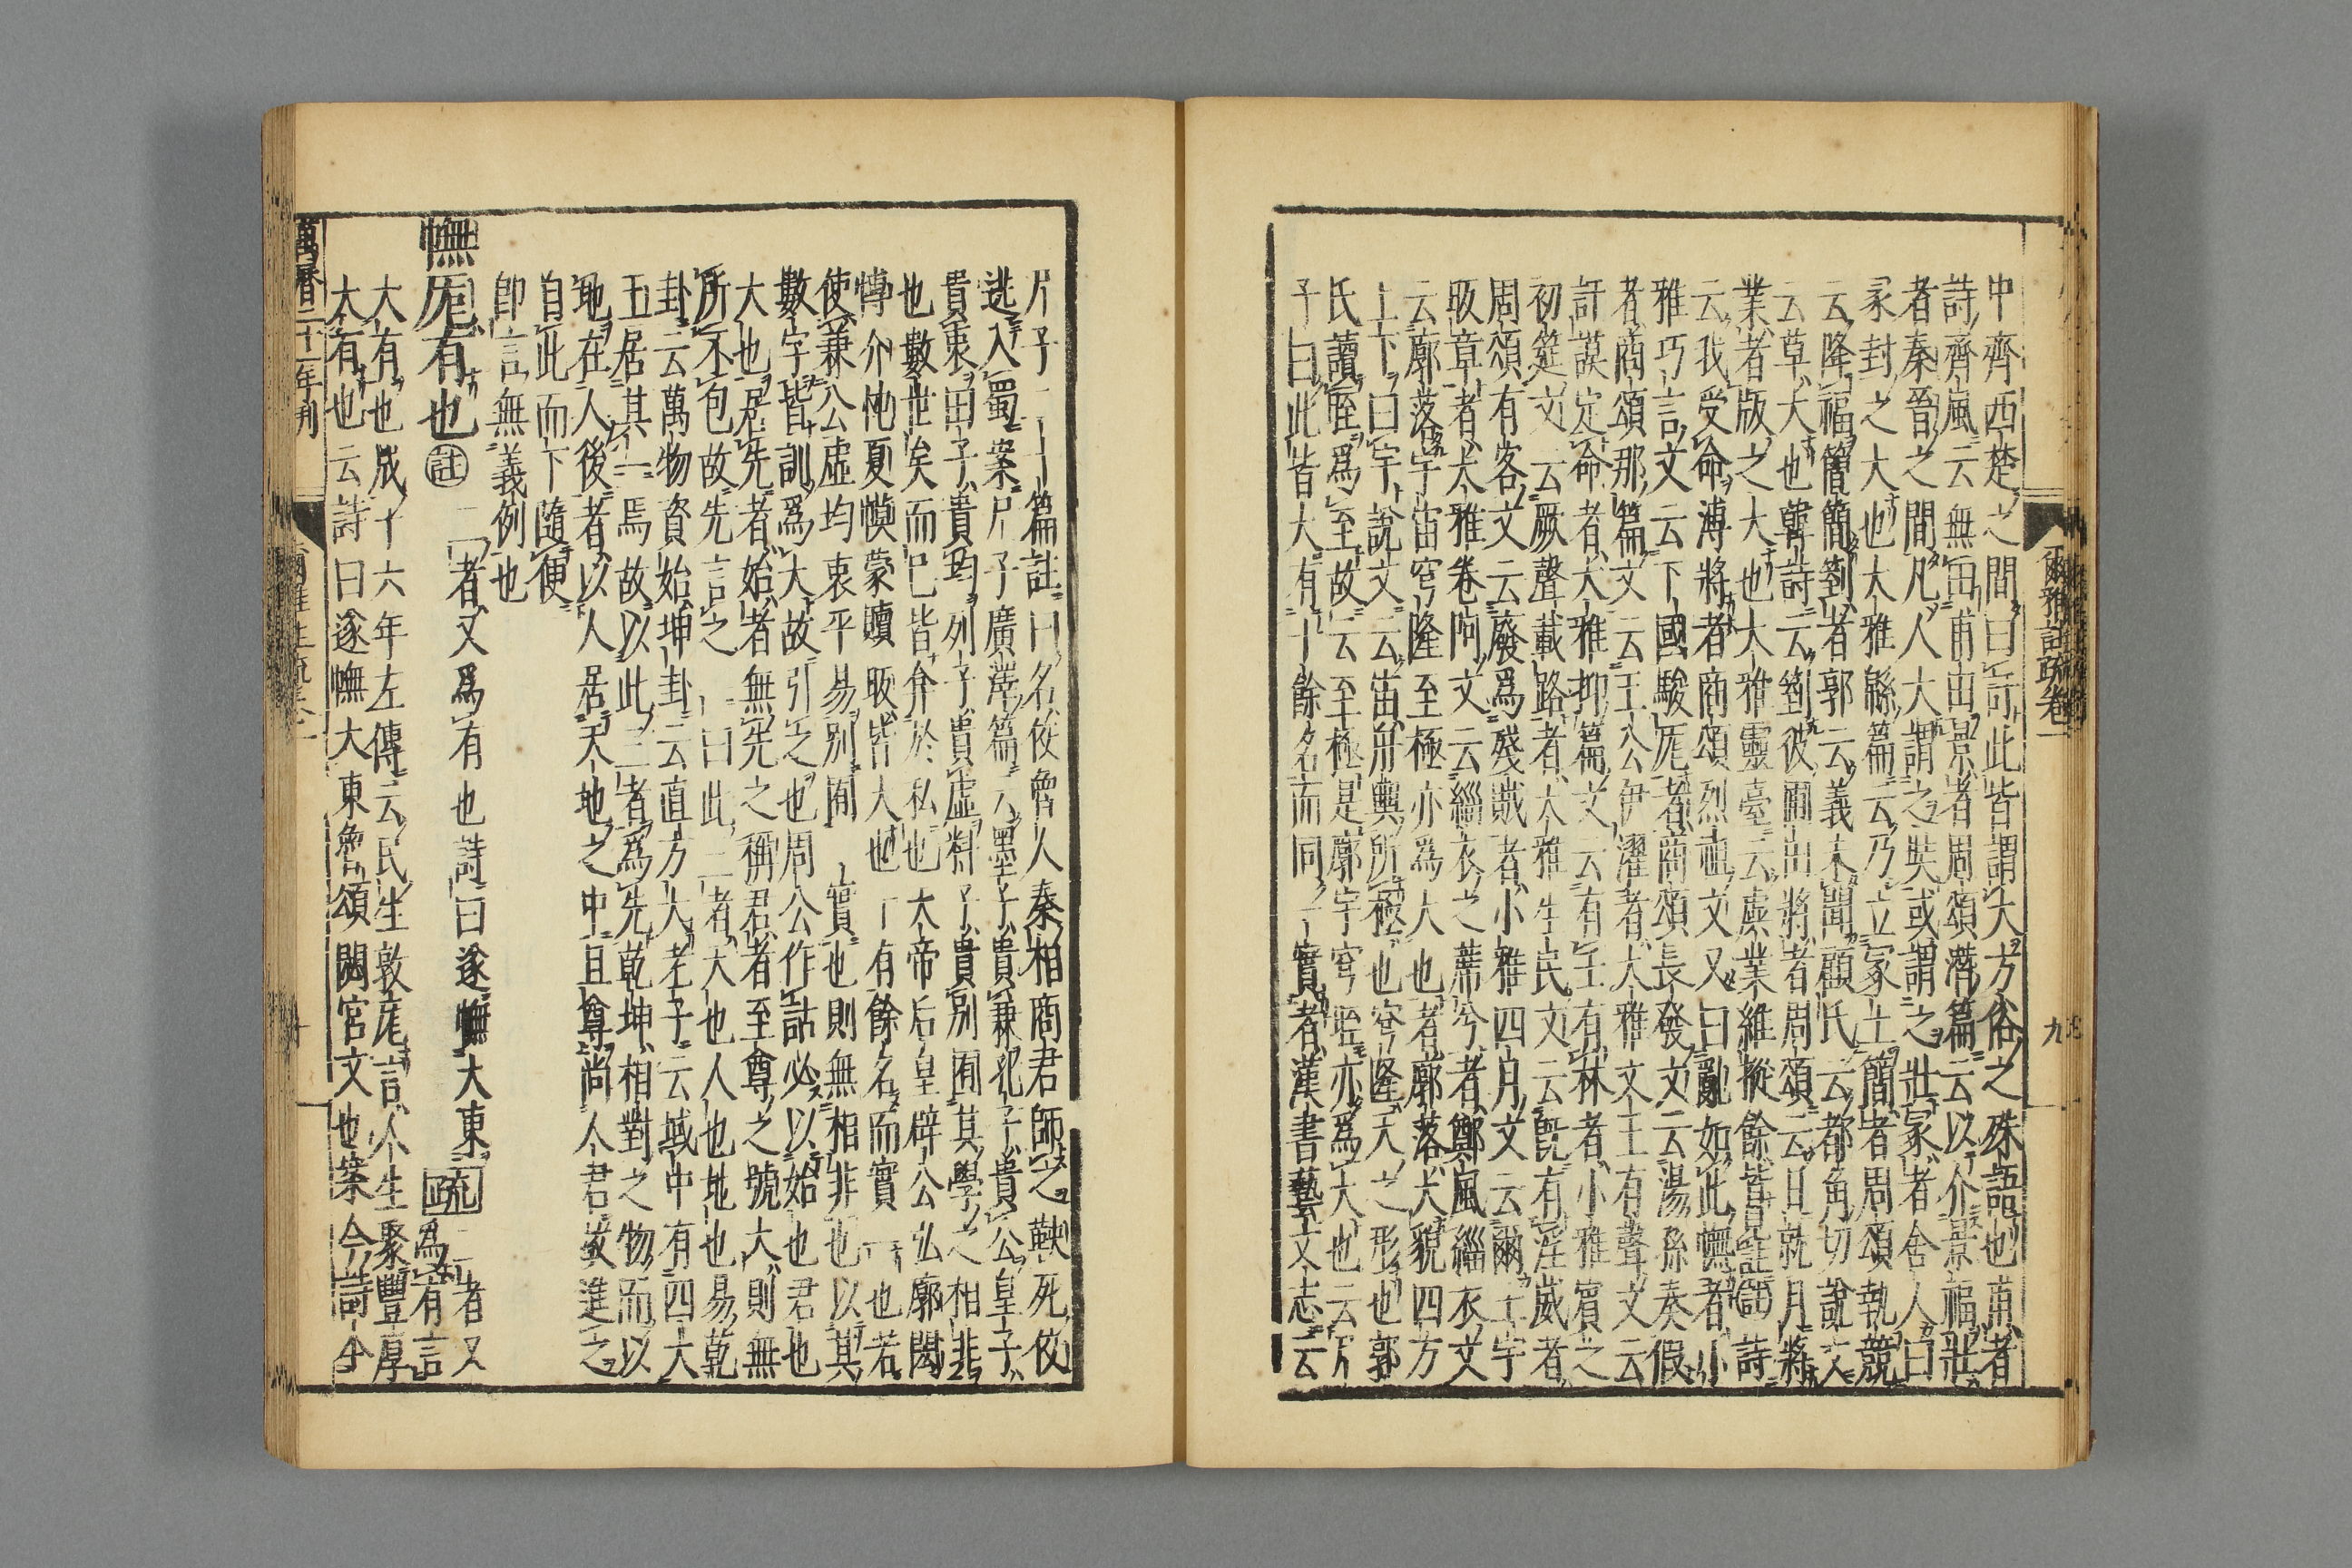 爾雅註疏卷一
九
中齊西楚之間曰訏此皆謂大方俗之殊語也甫者
詩齊風云無田甫田景者周頌潛篇云以介景福壯
者秦晉之間凡人大謂之奘或謂之壯冢者舍人曰
冢封之大也大雅緜篇云乃立冢土簡者周頌執競
云降福簡簡箌者郭云義未聞顧氏云都角切說文
云草大也韓詩云箌彼甫田將者周頌云日就月將
業者版之大也大雅靈臺云虡業維樅餘皆見註註詩
云我受命溥將者商頌烈祖文又曰亂如此幠者小
雅巧言文云下國駿厖者商頌長發文云湯孫奏假
者商頌那篇文云王公伊濯者大雅文王有聲文云
訏謨定命者大雅抑篇文云有壬有林者小雅賓之
初筵文云厥聲載路者大雅生民文云旣有淫威者
周頌有客文云廢爲殘賊者小雅四月文云爾土宇
昄章者大雅卷阿文云緇衣之蓆兮者鄭風緇衣文
云廓落宇宙穹隆至極亦爲大也者廓落大貌四方
上下曰宇說文云宙舟輿所極也穹隆天之形也郭
氏讀晊爲至故云至極是廓宇穹晊亦爲大也云尸
子曰此皆大有十餘名而同一實者漢書藝文志云
尸子二十篇註曰名佼魯人秦相商君師之鞅死佼
逃入蜀案尸子廣澤篇云墨子貴兼孔子貴公皇子
貴衷田子貴均列子貴虛料子貴別囿其學之相非
也數世矣而已皆弇於私也天帝后皇辟公弘廓閎
慱介忳夏幠蒙贖昄皆大也十有餘名而實一也若
使兼公虛均衷平易別囿一實也則無相非也以其
數字皆訓爲大故引之也周公作詁必以始也君也
大也居先者始者無先之稱君者至尊之號大則無
所不包故先言之一曰此三者大也人也地也易乾
卦云萬物資始坤卦云直方大老子云域中有四大
王居其一焉故以此三者爲先乾坤相對之物而以
地在人後者以人居天地之中且尊尚人君故進之
自此而下隨便
卽言無義例也
幠厖有也註二者又爲有也詩曰遂幠大東疏二者又爲有言
大有也成十六年左傳云民生敦厖言人生聚豐厚
大有也云詩曰遂幠大東魯頌閟宮文也案今詩今
萬曆二十一年刊
爾雅註疏卷一